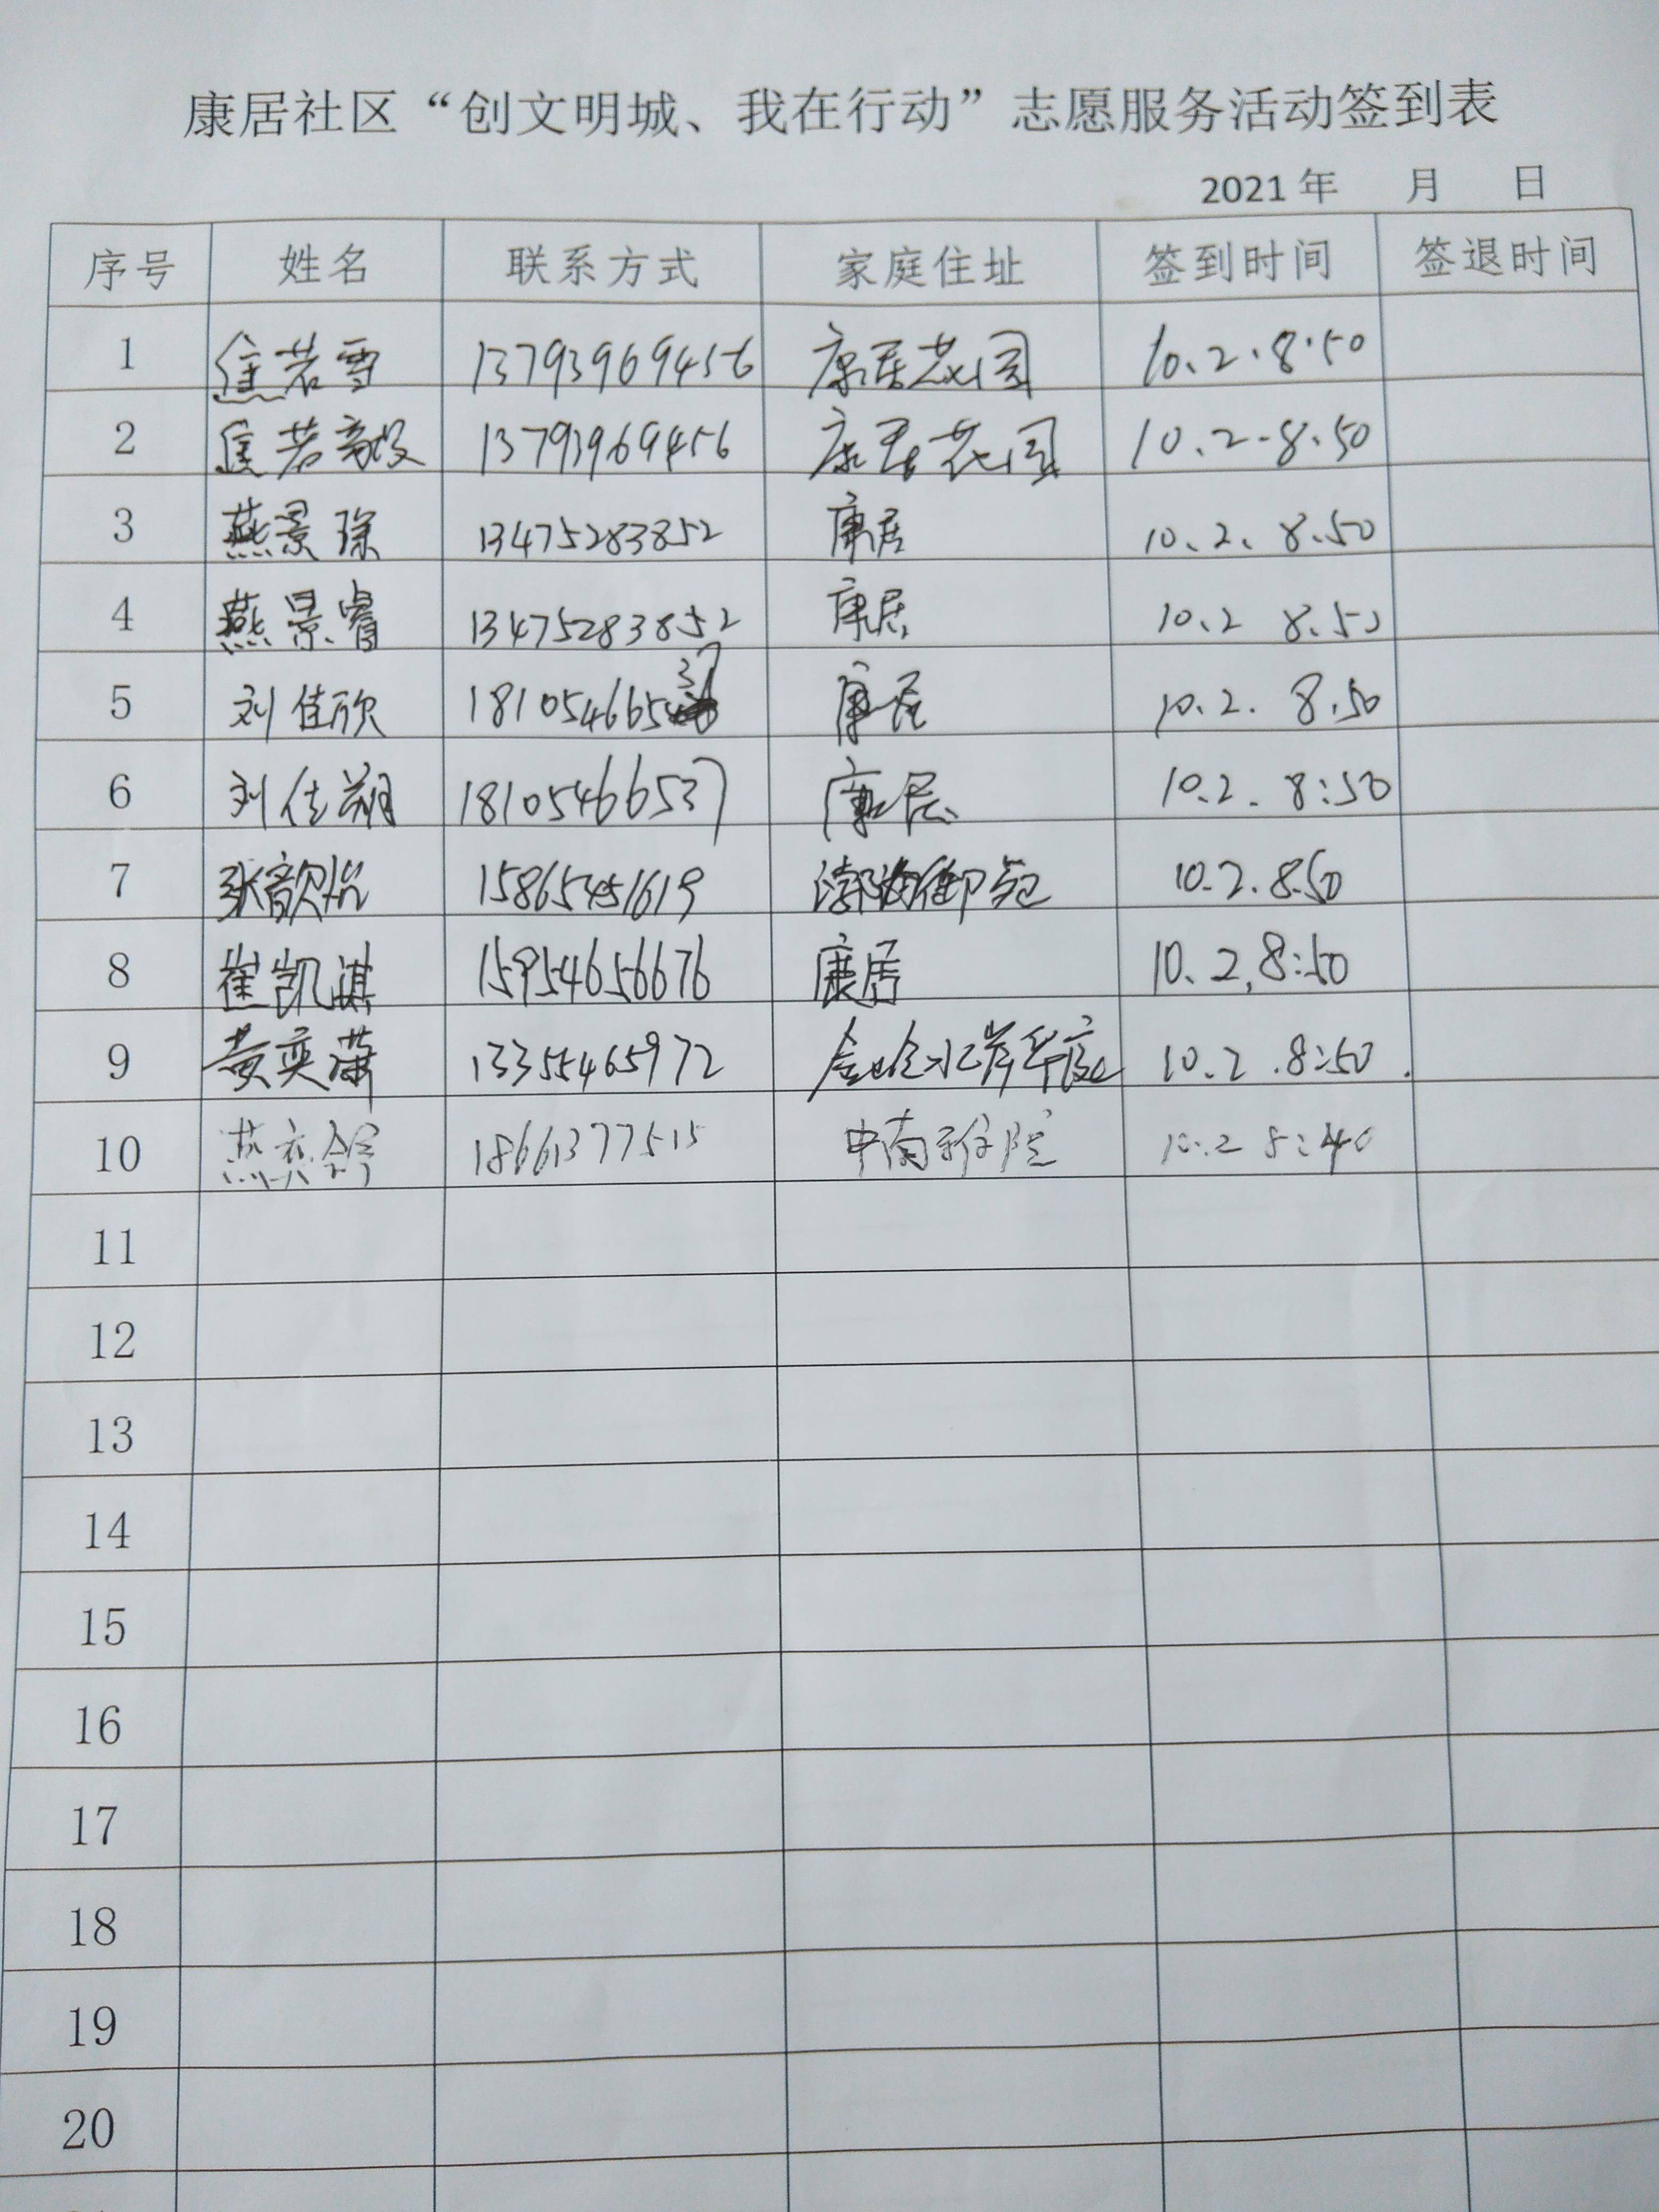 康居社区“创文明城、我在行动”志愿服务活动签到表
2021年 月 日
序号 姓名 联系方式 家庭住址 签到时间 签退时间
1 焦若雪 13793969456 康居花园 10.2.8.50
2 焦若毅 13793969456 康居花园 10.2-8.50
3 燕景琛 13475283852 康居 10、2、8.50
4 燕景睿 13475283852 康居 10.2 8.50
5 刘佳欣 18105466537 康居 10.2. 8.50
6 刘佳翔 18105466537 康居 10.2. 8:50
7 张歆怡 15865451619 渤海御苑 10.2.8.50
8 崔凯淇 15954656676 康居 10.2,8:50
9 黄奕潇 13355465972 金岭水岸华庭 10.2.8:50.
10 燕奕 18661377515 中南雅院 10.2 8:40
11
12
13
14
15
16
17
18
19
20